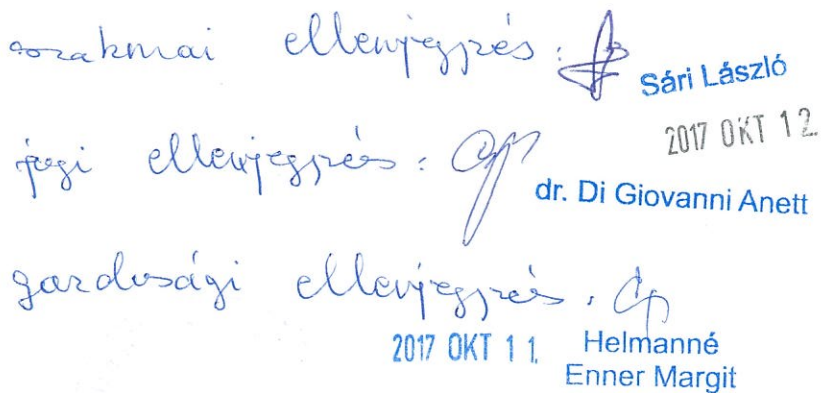 szakmai ellenjegyzés:
Sári László
2017 OKT 12.
jogi ellenjegyzés:
dr. Di Giovanni Anett
gazdasági ellenjegyzés:
2017 OKT 11.
Helmanné
Enner Margit